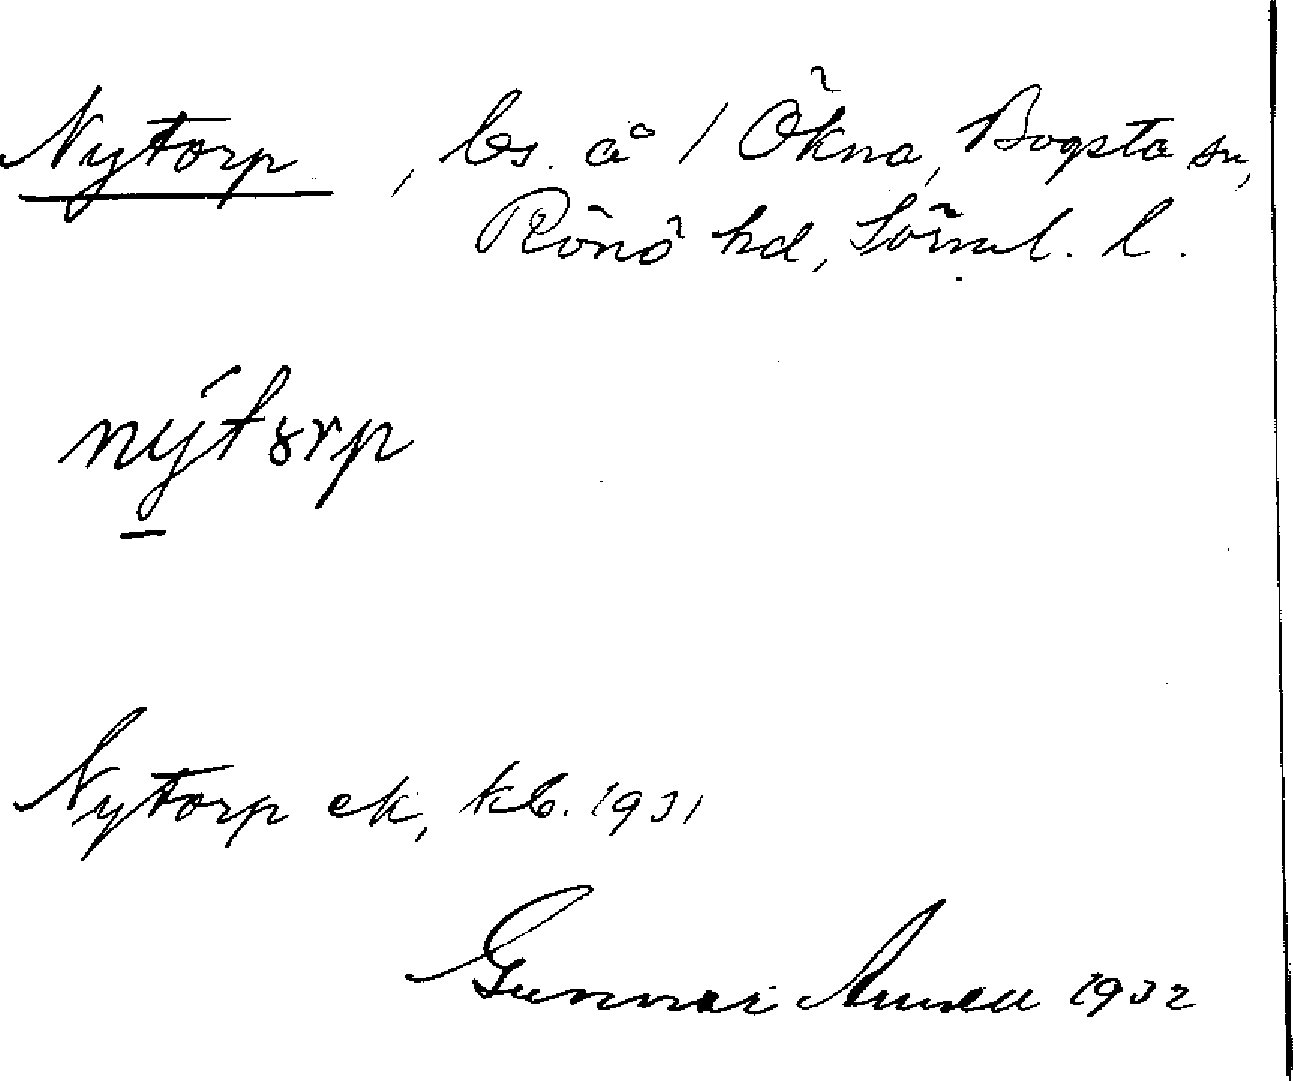 Nytorp, bs. å 1 Ökna, Bogsta sn,
Rönö hd, Sörml. l.
nýtorp
Nytorp ek, kb. 1931
Gunnar 1932